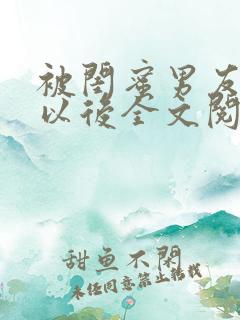 被閨蜜男友
以後全文閱
甜魚不閑
未经同意禁止转载